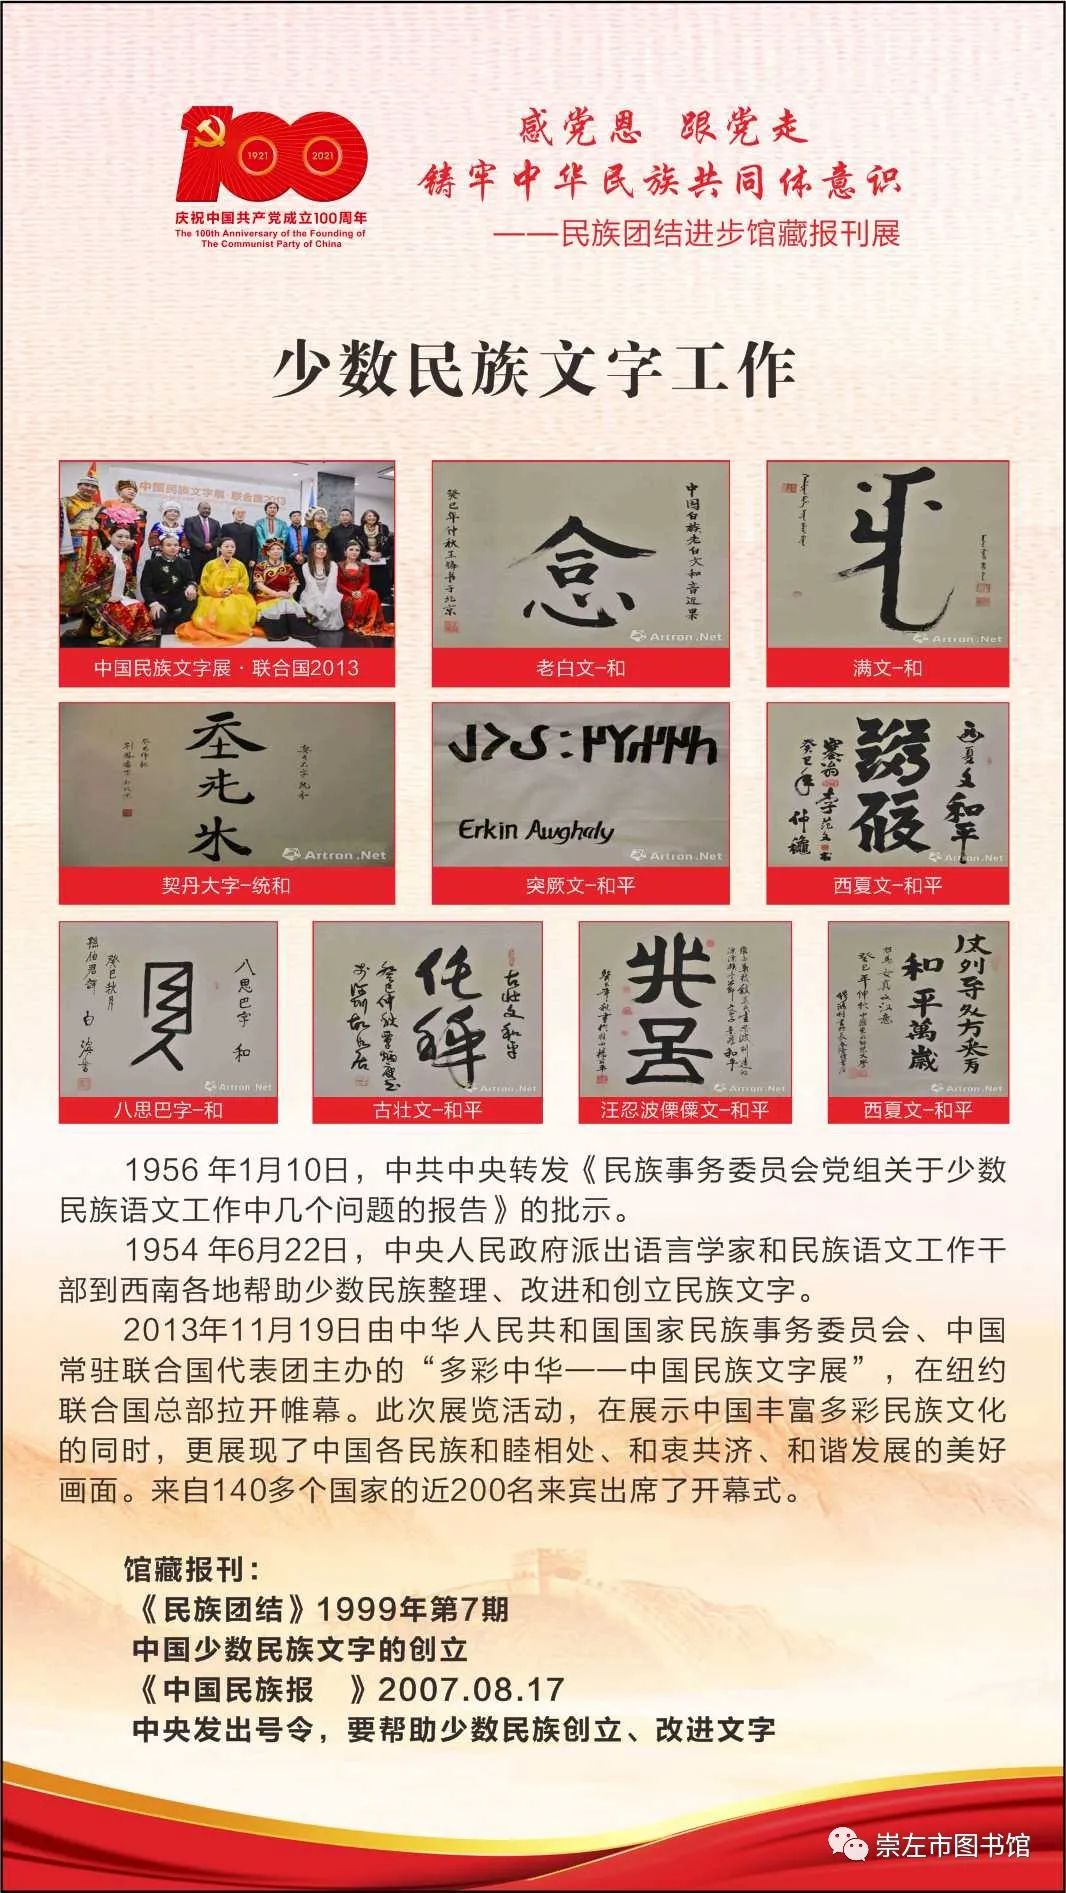 1921
2021
庆祝中国共产党成立100周年
The 100th Anniversary of the Founding of
The Communist Party of China
感党恩 跟党走
铸牢中华民族共同体意识
——民族团结进步馆藏报刊展
少数民族文字工作
中国民族文字展·联合国2013
中国民族文字展·联合国2013
中国白族老白文和音近果
癸巳年仲秋王锋书于北京
Artron.Net
老白文-和
Artron.Net
满文-和
Artron.Net
契丹大字-统和
Erkin Awghaly
Artron.Net
突厥文-和平
西夏文和平
癸巳年仲秋
Artron.Net
西夏文-和平
八思巴字 和
癸巳秋月
Artron.Net
八思巴字-和
古壮文和平
Artron.Net
古壮文-和平
Artron.Net
汪忍波傈僳文-和平
和平萬歲
Artron.Net
西夏文-和平
1956 年1月10日，中共中央转发《民族事务委员会党组关于少数
民族语文工作中几个问题的报告》的批示。
1954 年6月22日，中央人民政府派出语言学家和民族语文工作干
部到西南各地帮助少数民族整理、改进和创立民族文字。
2013年11月19日由中华人民共和国国家民族事务委员会、中国
常驻联合国代表团主办的“多彩中华——中国民族文字展”，在纽约
联合国总部拉开帷幕。此次展览活动，在展示中国丰富多彩民族文化
的同时，更展现了中国各民族和睦相处、和衷共济、和谐发展的美好
画面。来自140多个国家的近200名来宾出席了开幕式。
馆藏报刊：
《民族团结》1999年第7期
中国少数民族文字的创立
《中国民族报 》2007.08.17
中央发出号令，要帮助少数民族创立、改进文字
崇左市图书馆